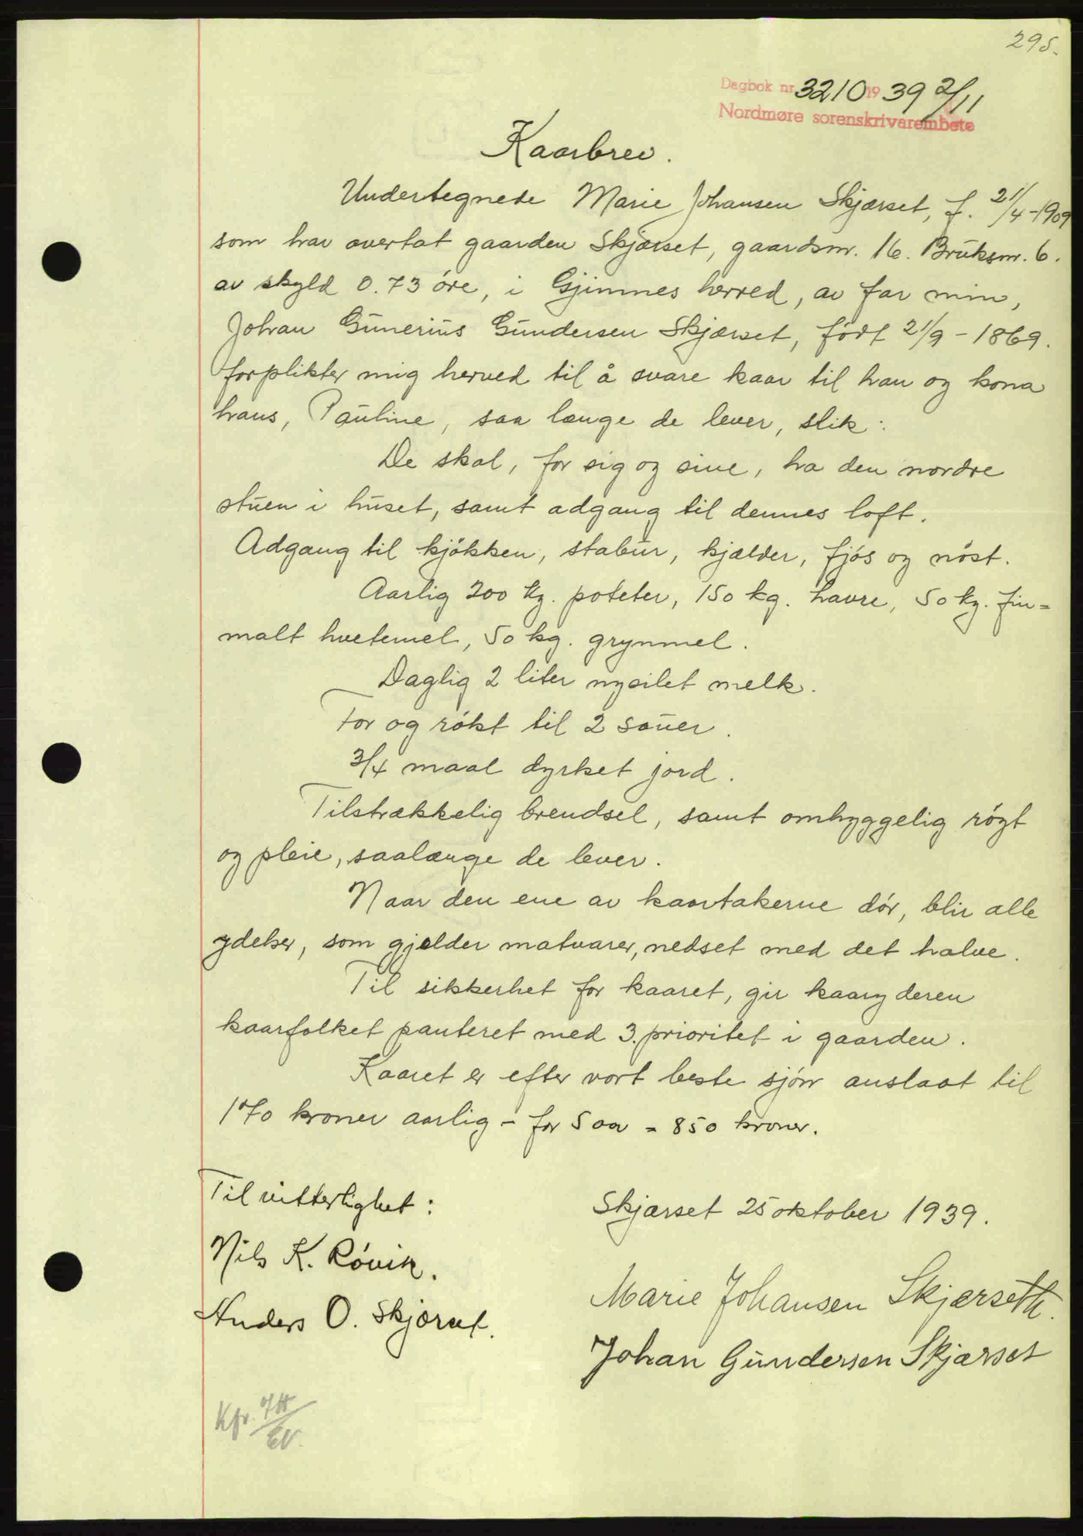 295.
Dagbok nr. 3210 19 39 2/11
Nordmøre sorenskrivarembete
Kaarbrev.
Undertegnede Marie Johansen Skjærset, f. 21/4-1909
som har overtat gaarden Skjærset, gaardsnr. 16. Brüksnr. 6.
av skyld 0.73 øre, i Gjimnes herred, av far min,
Johan Günerius Gündersen Skjærset, født 21/9-1869.
forplikter mig herved til å svare kaar til han og kona
hans, Pauline, saa længe de lever, slik:
De skal, for sig og sine, ha den nordre
stüen i hüset, samt adgang til dennes loft.
Adgang til kjøkken, stabür, kjælder, fjøs og nøst.
Aarlig 200 kg. poteter, 150 kg. havre, 50 kg. fin=
malt hvetemel, 50 kg. grynmel.
Daglig 2 liter nysilet melk.
For og røkt til 2 sauer.
3/4 maal dyrket jord.
Tilstrækkelig brendsel, samt omhyggelig røgt
og pleie, saalænge de lever.
Naar den ene av kaartakerne dør, blir alle
ydelser, som gjelder matvarer, nedset med det halve.
Til sikkerhet for kaaret, gir kaaryderen
kaarfolket panteret med 3. prioritet i gaarden.
Kaaret er efter vort beste skjøn anslaat til
170 kroner aarlig - for 5 aar = 850 kroner.
Til vitterlighet:
Skjærset 25 oktober 1939.
Nils K. Røvik.
Marie Johansen Skjærseth.
Anders O. Skjærset.
Johan Gündersen Skjærset
Kfr.